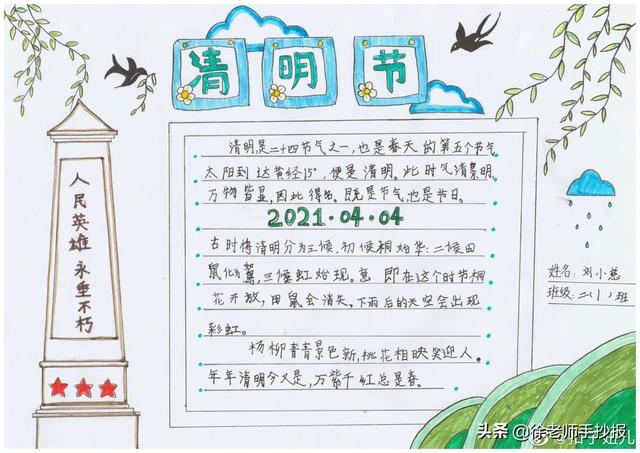 清明节
人民英雄永垂不朽
清明是二十四节气之一,也是春天的第五个节气
太阳到达黄经15°,便是清明。此时气清景明,
万物皆显,因此得名。既是节气也是节日。
2021·04·04
古时将清明分为三候,初候桐始华:二候田
鼠化为鴽,三候虹始现。意 即在这个时节桐
花开放,田鼠会消失,下雨后的天空会出现
彩虹。
杨柳青青景色新,桃花相映笑迎人。
年年清明分又是,万紫千红总是春。
姓名:刘小慈
班级:二(1)班
头条 @徐老师手抄报